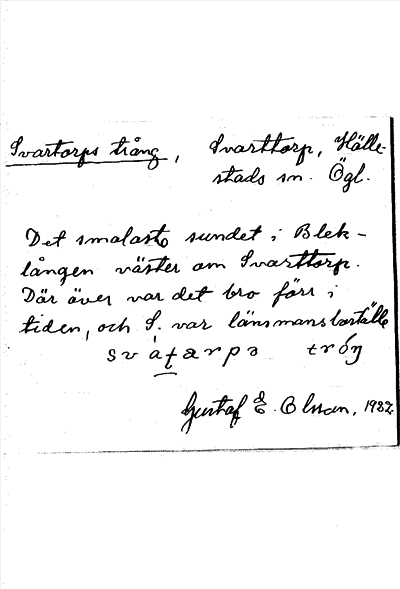 Svartorps trång, Svarttorp, Hälle-
stads sn. Ögl.
Det smalaste sundet i Blek-
lången väster om Svarttorp.
Där över var det bro förr i
tiden, och S. var länsmansboställe
Gustaf E. Olsson, 1932